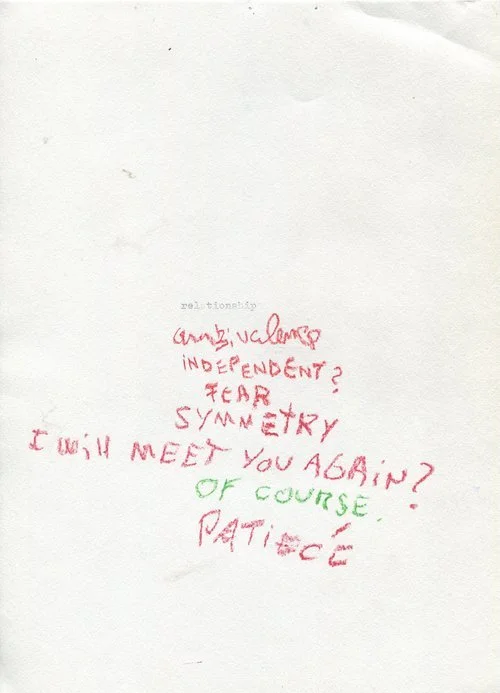 relationship
ambivalence
iNDEPENDENT?
FEAR
SYMMETRY
I WiLL MEET YOU AGAiN?
OF COURSE.
PATiECÉ